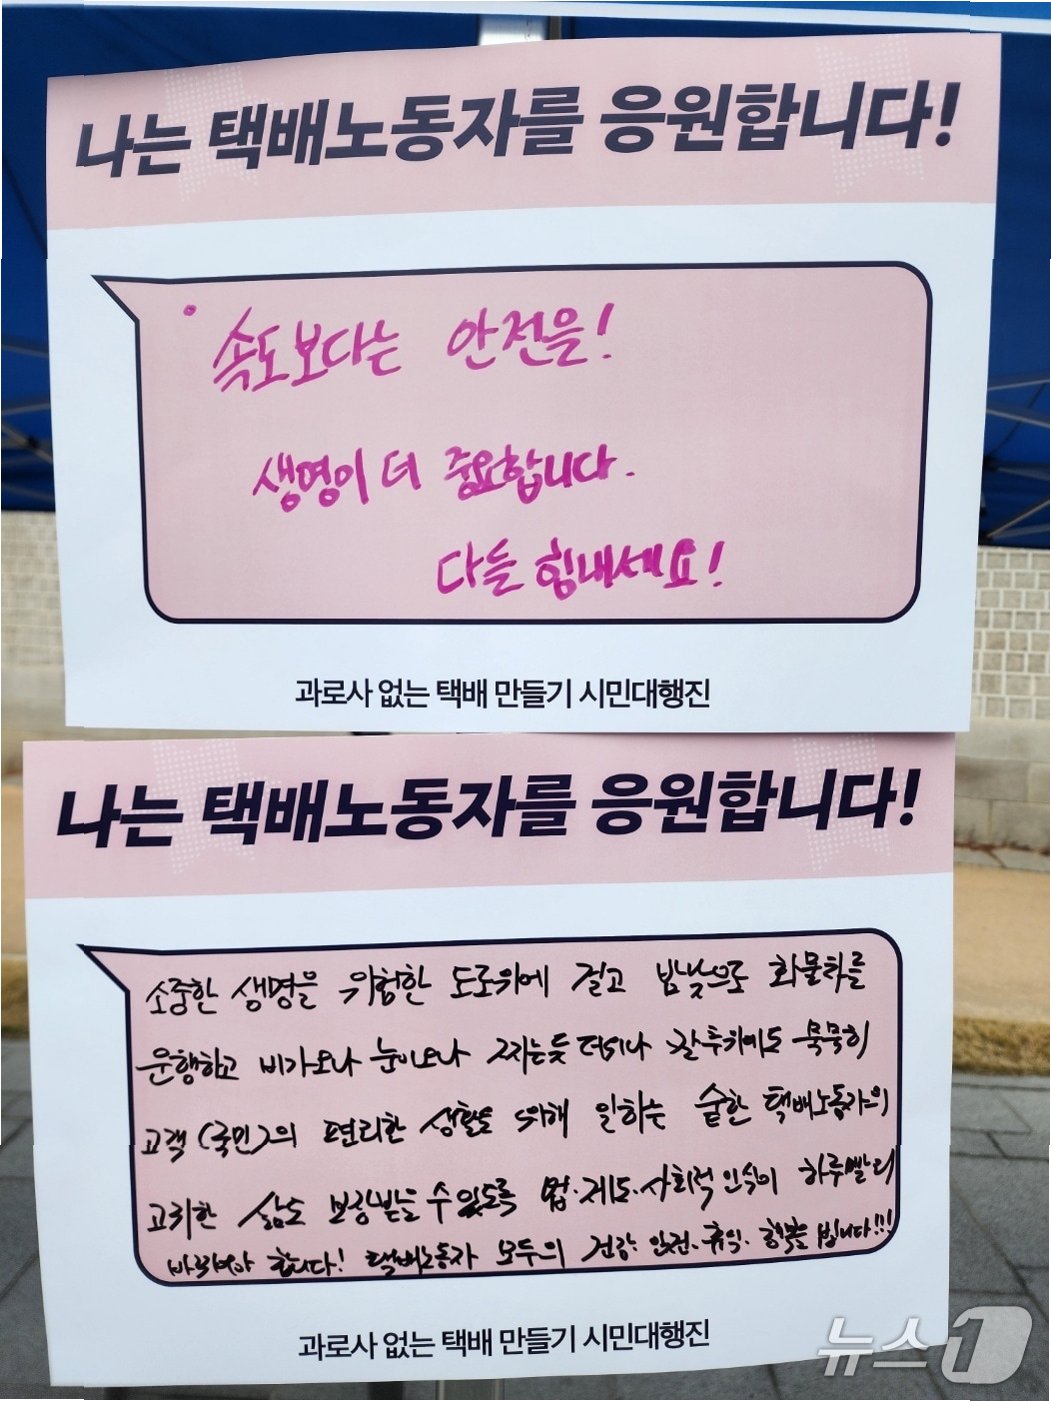 나는 택배노동자를 응원합니다!
속도보다는 안전을!
생명이 더 중요합니다.
다들 힘내세요!
과로사 없는 택배 만들기 시민대행진
나는 택배노동자를 응원합니다!
소중한 생명을 위험한 도로위에 걸고 밤낮으로 화물차를
운행하고 비가오나 눈이오나 찌는듯 더우나 칼추위에도 묵묵히
고객(국민)의 편리한 생활을 위해 일하는 숱한 택배노동자의
고귀한 삶도 보장받을 수 있도록 법·제도·사회적 인식이 하루빨리
바뀌어야 합니다! 택배노동자 모두의 건강·안전·휴식·행복을 빕니다!!!
과로사 없는 택배 만들기 시민대행진
뉴스1